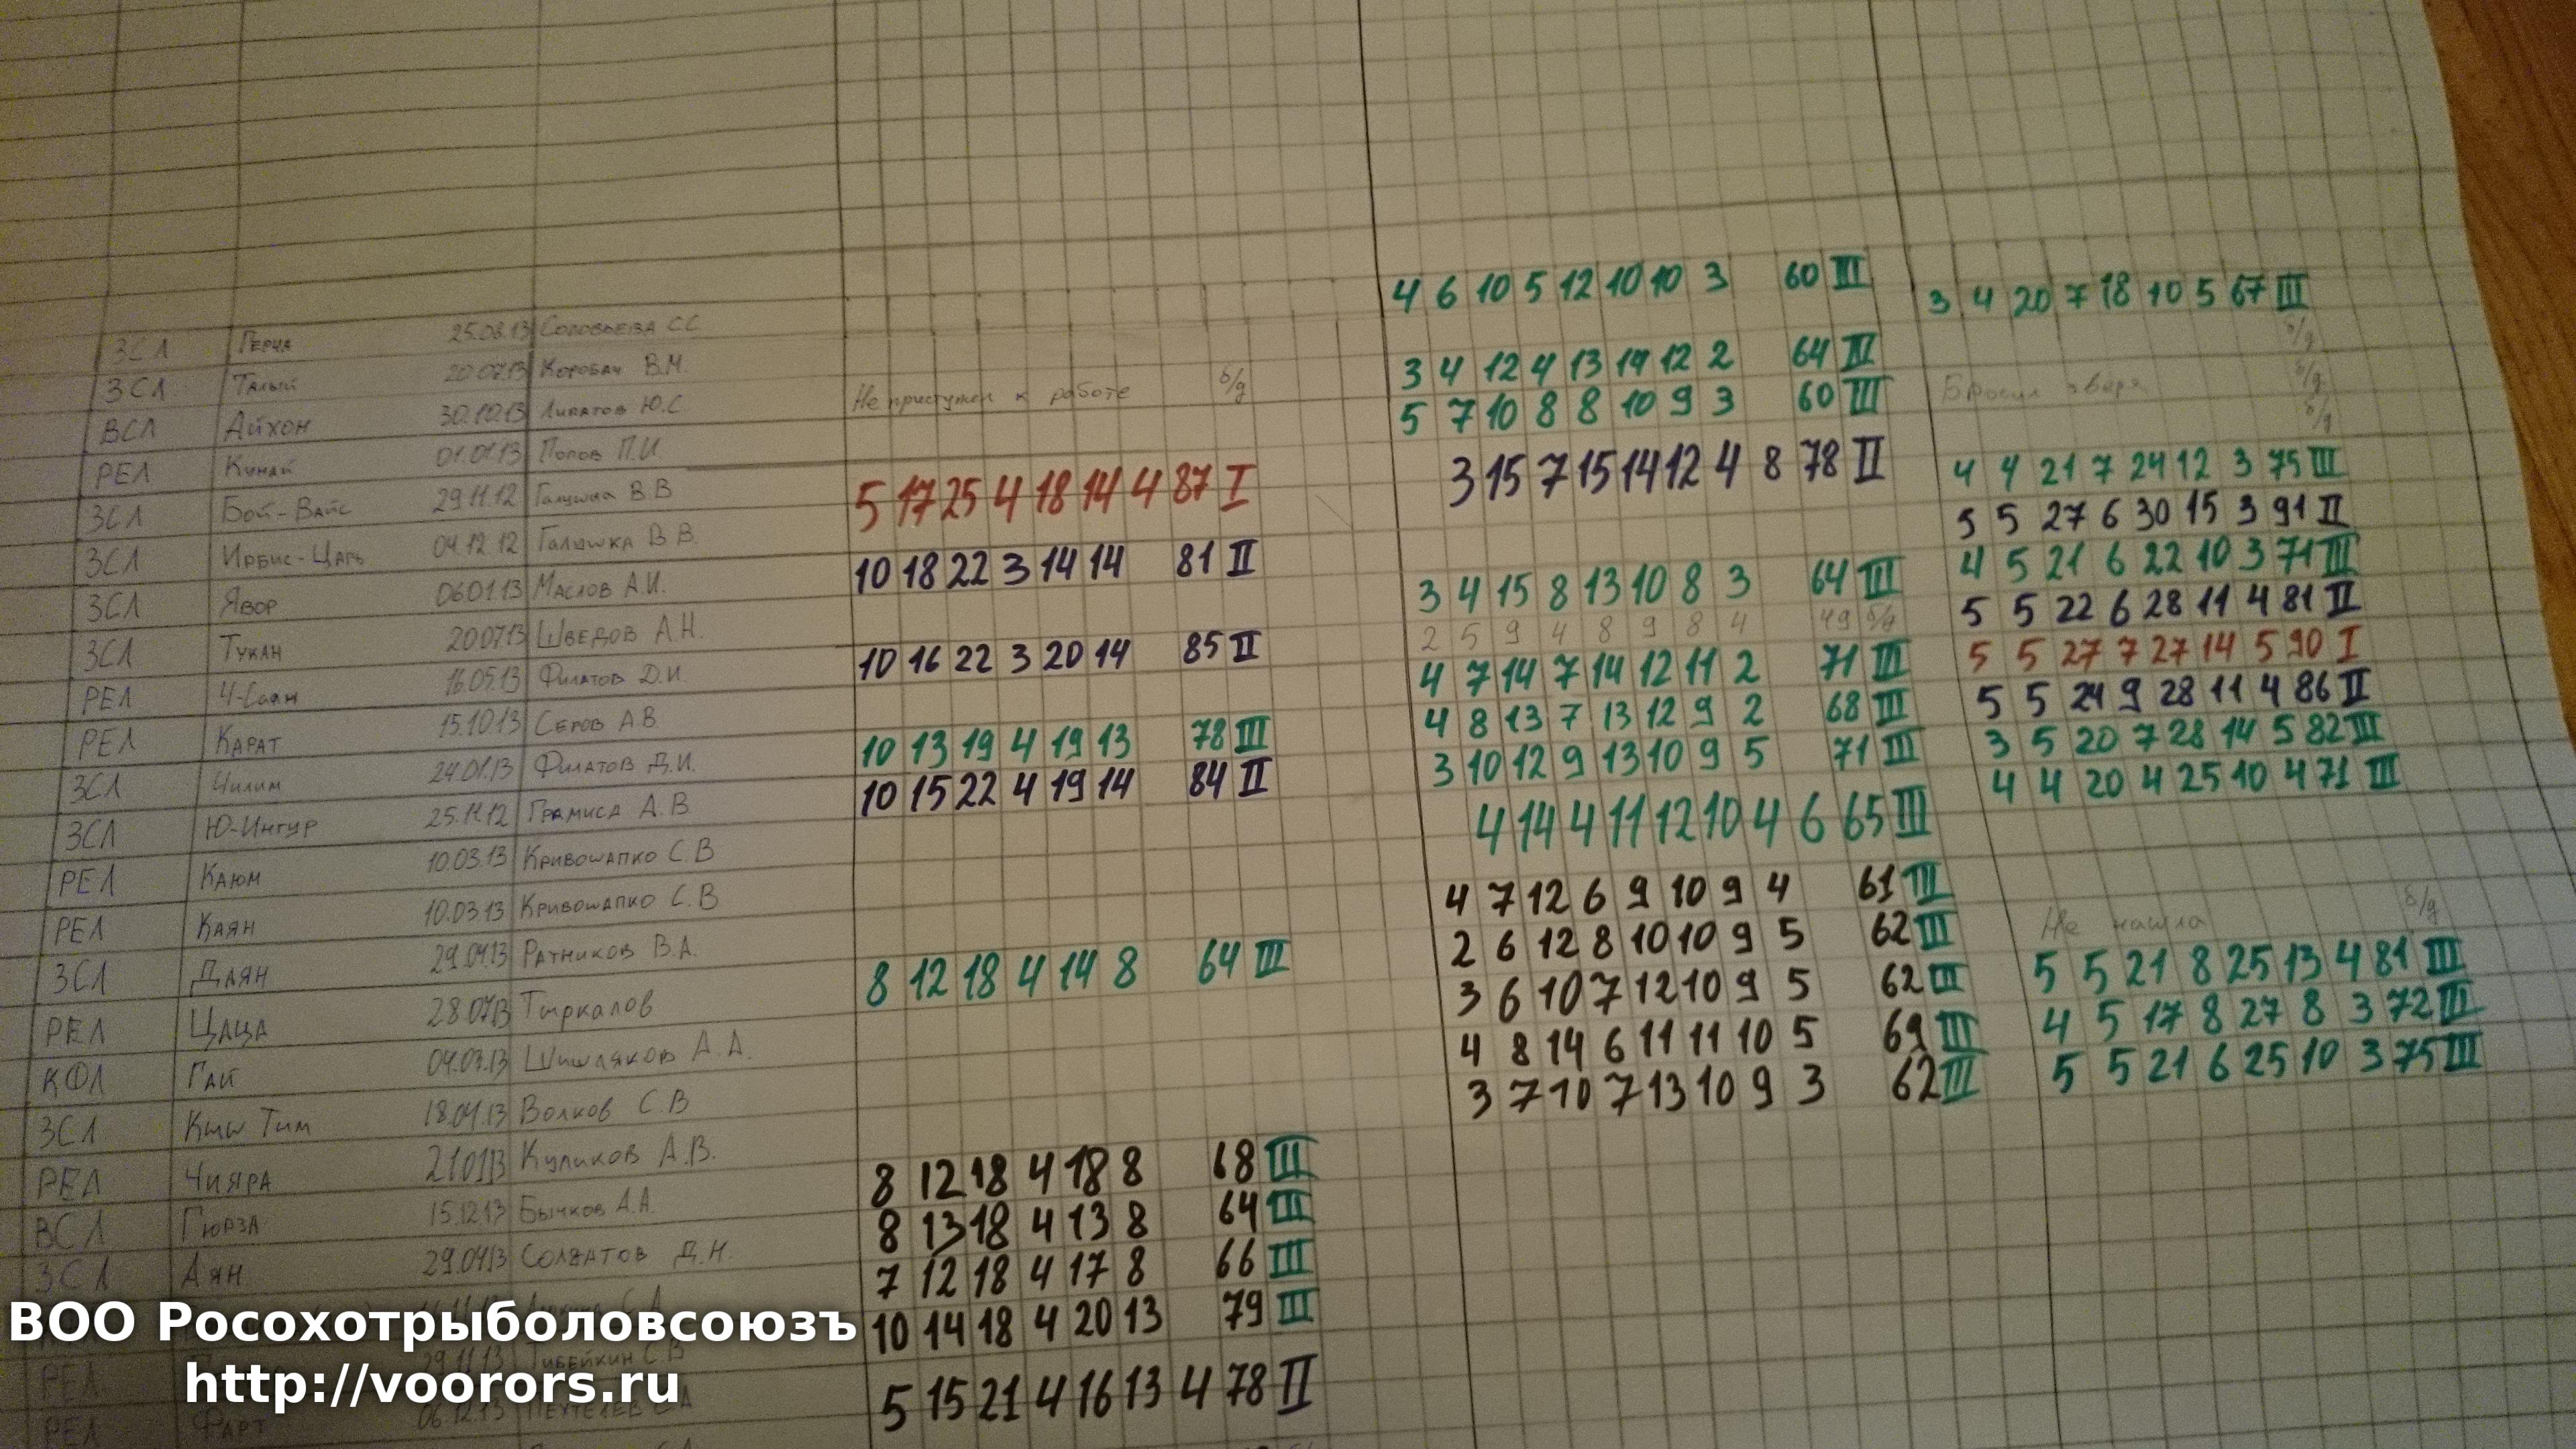 ЗСЛ Герча 25.08.13 Соловьева С.С 4 6 10 5 12 10 10 3 60 III 3 4 20 7 18 10 5 67 III
ЗСЛ Талый 20.07.13 Коробач В.М. б/д
ВСЛ Айхон 30.10.13 Липатов Ю.С Не приступил к работе б/д 3 4 12 4 13 14 12 2 64 III Бросил зверя б/д
РЕЛ Кунай 01.01.13 Попов П.И. 5 7 10 8 8 10 9 3 60 III б/д
ЗСЛ Бой-Вайс 29.11.12 Галушка В.В 5 17 25 4 18 14 4 87 I 3 15 7 15 14 12 4 8 78 II 4 4 21 7 24 12 3 75 III
ЗСЛ Ирбис-Царь 04.12.12 Галушка В.В. 5 5 27 6 30 15 3 91 II
ЗСЛ Явор 06.01.13 Маслов А.И. 10 18 22 3 14 14 81 II 3 4 15 8 13 10 8 3 64 III 4 5 21 6 22 10 3 71 III
ЗСЛ Тукан 20.07.13 Шведов А.Н. 2 5 9 4 8 9 8 4 49 б/д 5 5 22 6 28 11 4 81 II
РЕЛ Ч-Саян 16.05.13 Филатов Д.И. 10 16 22 3 20 14 85 II 4 7 14 7 14 12 11 2 71 III 5 5 27 7 27 14 5 90 I
РЕЛ Карат 15.10.13 Серов А.В. 4 8 13 7 13 12 9 2 68 III 5 5 24 9 28 11 4 86 II
ЗСЛ Чилим 24.01.13 Филатов Д.И. 10 13 19 4 19 13 78 III 3 10 12 9 13 10 9 5 71 III 3 5 20 7 28 14 5 82 III
ЗСЛ Ю-Ингур 25.11.12 Грамиса А.В. 10 15 22 4 19 14 84 II 4 14 4 11 12 10 4 6 65 III 4 4 20 4 25 10 4 71 III
РЕЛ Каюм 10.03.13 Кривошапко С.В 4 7 12 6 9 10 9 4 61 III
РЕЛ Каян 10.03.13 Кривошапко С.В 2 6 12 8 10 10 9 5 62 III
ЗСЛ Даян 29.04.13 Ратников В.А. 8 12 18 4 14 8 64 III 3 6 10 7 12 10 9 5 62 III Не нашла б/д
РЕЛ Цаца 28.07.13 Тыркалов 4 8 14 6 11 11 10 5 69 III 5 5 21 8 25 13 4 81 III
КФЛ Гай 04.03.13 Шишляков А.А. 3 7 10 7 13 10 9 3 62 III 4 5 17 8 27 8 3 72 III
ЗСЛ Кыш Тим 18.04.13 Волков С.В 5 5 21 6 25 10 3 75 III
РЕЛ Чияра 21.01.13 Куликов А.В. 8 12 18 4 18 8 68 III
ВСЛ Гюрза 15.12.13 Бычков А.А. 8 13 18 4 13 8 64 III
ЗСЛ Аян 29.04.13 Солдатов Д.Н. 7 12 18 4 17 8 66 III
10 14 18 4 20 13 79 III
РЕЛ 29.11.13 Тибейкин С.В 5 15 21 4 16 13 4 78 II
РЕЛ Фарт 06.12.13
ВОО Росохотрыболовсоюзъ
http://voorors.ru